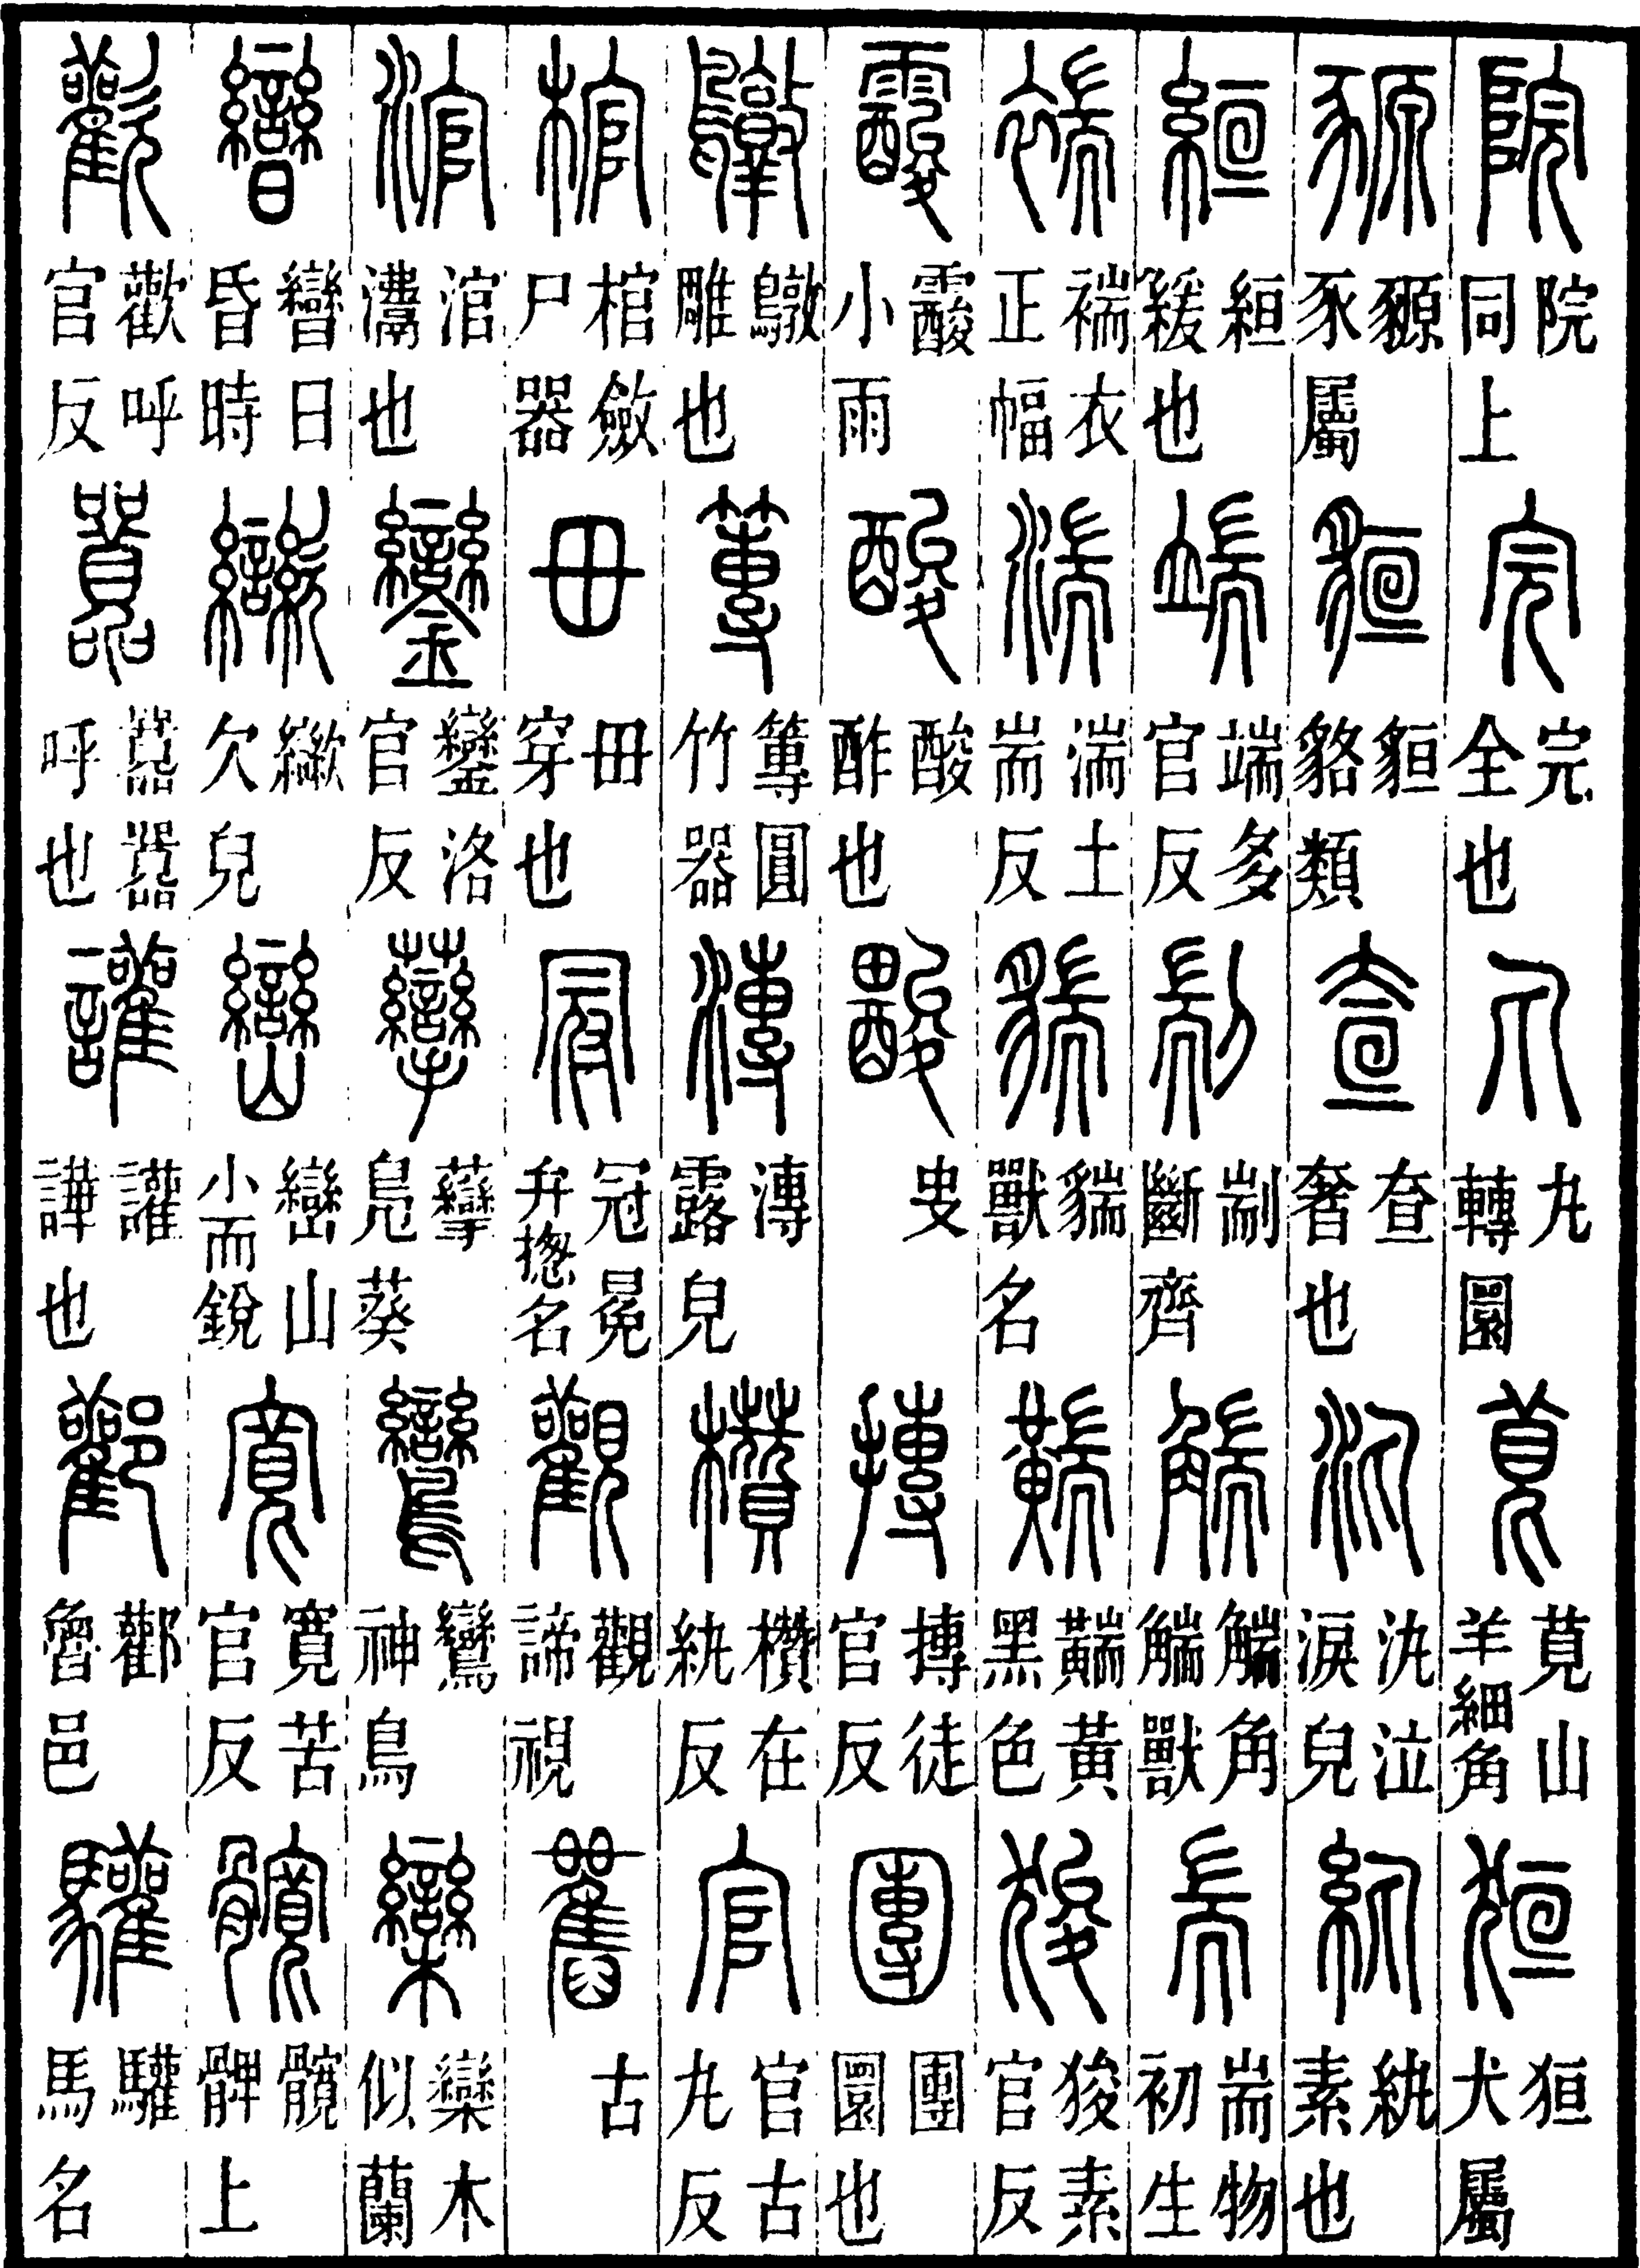 院院同上完完全也丸丸轉圜萈萈山羊細角狟狟犬屬
豲豲豕屬貆貆貉類查查奢也汍汍泣淚皃紈紈素也
絙絙緩也端端多官反剬剬斷齊𧤗𧤗角𧤗獸耑耑物初生
褍褍衣正幅湍湍土耑反貒貒獸名䵎䵎黃黑色狻狻素官反
䨘䨘小雨酸酸酢也叓摶摶徒官反團團圜也
鷻鷻雕也篿篿圓竹器漙漙露皃欑欑在紈反官官古丸反
棺棺斂尸器毌毌穿也冠冠冕弁揔名觀觀諦視古
涫涫𤅊也鑾鑾洛官反虊虊鳧葵鸞鸞神鳥欒欒木似蘭
曫曫日昏時𣤶𣤶欠皃巒巒山小而銳寬寬苦官反髖髖髀上
歡歡呼官反呼也讙讙譁也酄酄魯邑驩驩馬名